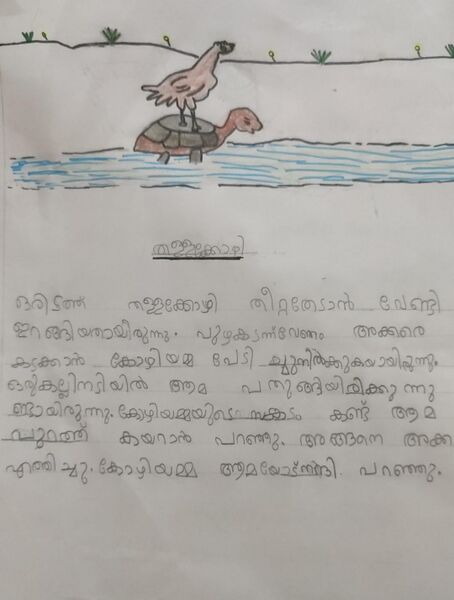 തള്ളക്കോഴി
ഒരിടത്ത് തള്ളക്കോഴി തീറ്റതേടാൻ വേണ്ടി
ഇറങ്ങിയതായിരുന്നു. പുഴകടന്ന്വേണം അക്കരെ
കടക്കാൻ കോഴിയമ്മ പേടി ച്ചുനിൽക്കുകയായിരുന്നു.
ഒരുകല്ലിനടിയിൽ ആമ പതുങ്ങിയിരിക്കുന്നു
ണ്ടായിരുന്നു. കോഴിയമ്മയുടെ സങ്കടം കണ്ട് ആമ
പുറത്ത് കയറാൻ പറഞ്ഞു. അങ്ങനെ അക്ക
എത്തിച്ചു. കോഴിയമ്മ ആമയോട്നന്ദി പറഞ്ഞു.